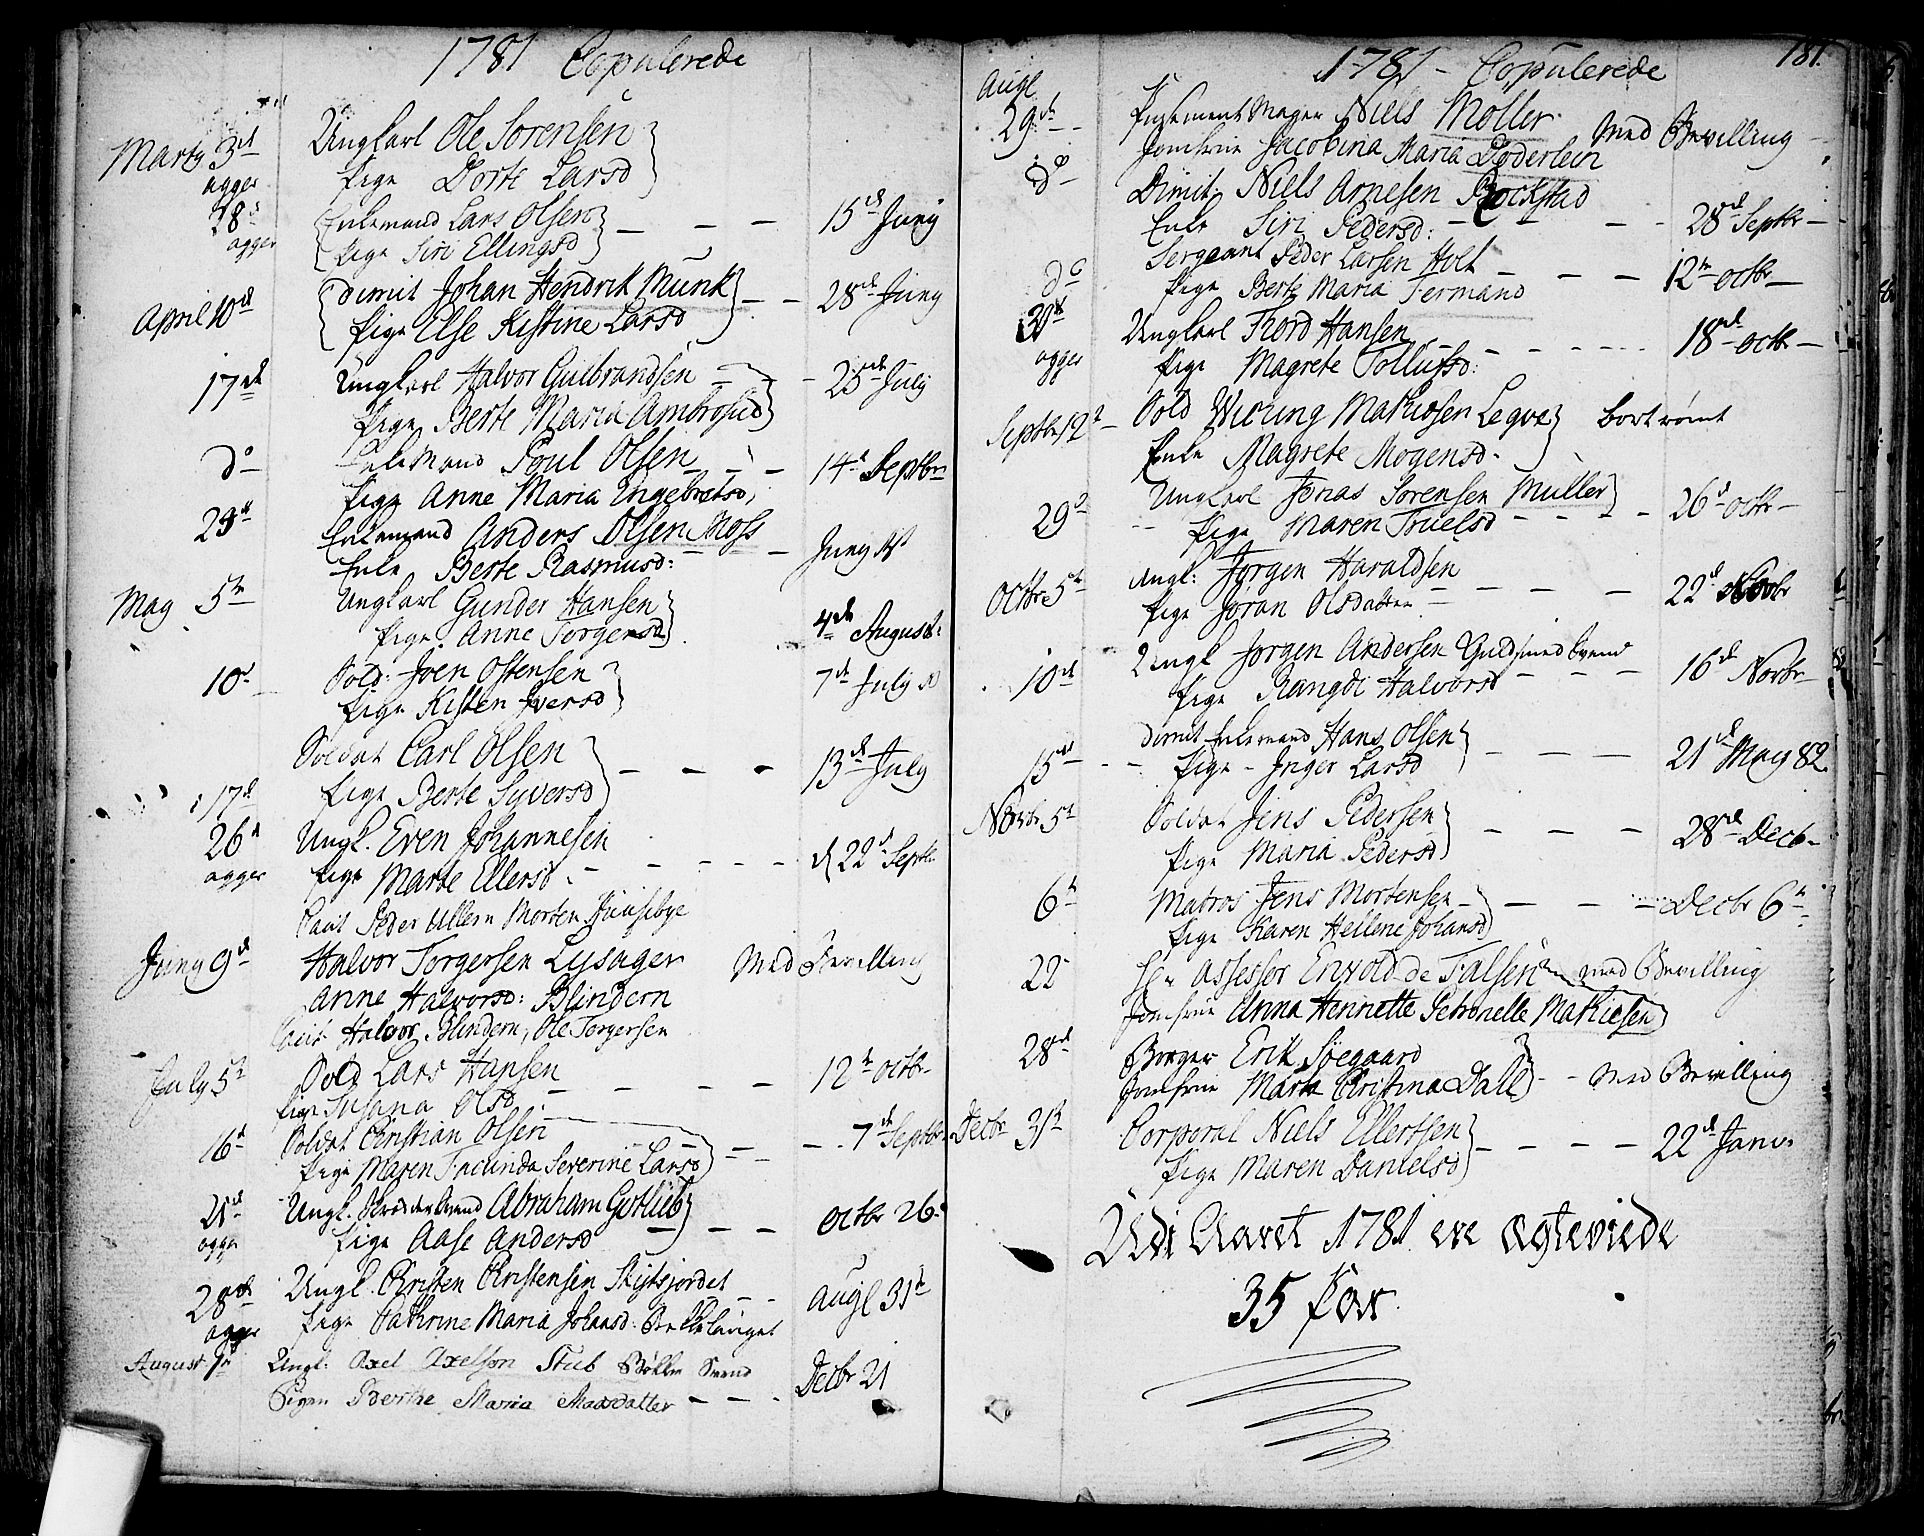 1781 Copulerede
Martz 3d Ungkarl Ole Sorensen
agger Pige Dorte Larsd
28d Enkemand Lars Olsen — — — 15de Juny
agger Pige Siri Ellingsd
April 10de Dimit Johan Hendrik Munk — — 28de Juny
Pige Else Kistine Larsd
17de Ungkarl Halvor Gulbrandsen — — 25de July
Pige Berte Maria Ambrosid
do Enkemand Poul Olsen — — 14d Septbr
Pige Anne Maria Ingebretsd
Enkemand Anders Olsen Moss — Juny
Enke Berte Rasmusd:
May 5te Ungkarl Gunder Hansen
Pige Anne Torgersd 4de August:
10d Sold: Joen Ostensen 7de July
Pige Kisten Iversd
Soldat Carl Olsen — — — 13de July
17d Pige Berte Syversd
26d Ungl. Even Johannesen
agger Pige Marte Ellersd — — — 22d Septbr
Caut Peder Ullern Morten
Juny 9de Halvor Torgersen Lysager Med Bevilling
Anne Halvorsd: Blindern
Caut Halvor Blindern, Ole Torgersen
July 5t Sold Lars Hansen — — — 12t octbr
Pige Susana Olsd
16d Soldat Christian Olsen — — 7de Septbr
Pige Maren Severine Larsd
21de Ungl. Skrædersvend Abraham Gotlieb — — octbr 26
agger Pige Aase Andersd
28de Ungl. Christen Christensen — — Augl 31te
agger Pige Cathrine Maria Johansd:
August Ungl: Axel Axelson Stub Svend Decbr 21
Pigen Berthe Maria Madsdatter — — -
1781 - Copulerede 181.
Augl
29de Mager Niels Moller Med Bevilling
Jomfrue Jacobina Maria Doderlein
do Dimit: Niels Arnesen Rockstad
Enke Siri Pedersd: — — — 28de Septbr —
do Sergeant Peder Larsen Holt — — — 12te octbr —
Pige Berte Maria Fermand
31te Ungkarl Tord Hansen — — — 18de octbr —
agger Pige Magrete Tollufsd:
Septbr 12t Sold Mathisen Leqve bortrömt
Enke Magrete Mogensd.
29d Ungkarl Jonas Sorensen Müller 26d octbr —
Pige Maren Truelsd — — —
Octbr 5te Ungl: Jörgen Haraldsen — — — 22d Novbr
Pige Joran Olsdatter —
10de Ungl Jorgen Andersen Guldsmed Svend 16de Novbr —
Pige Rangdi Halvorsd — — —
15de Dimit Enkemand Hans Olsen — — — 21de May 82.
Pige - Inger Larsd
Novbr 5t Soldat Jens Pedersen — — — 28de Decbr
Pige Maria Pedersd
6t Matros Jens Mortensen — — — Decbr 6te
Pige Karen Hellene Johansd
22 Hr Assessor Enwold de Falsen med Bevilling
Jomfrue Anna Henriette Petronelle Mathiesen
28de Borger Erik Siegaard
Jomfrue Maria Christina Dall — — Med Bevilling
Decbr 31t Corporal Niels Ellertsen — — — 22de Janv.
Pige Maren Danielsd
Udi Aaret 1781 ere ægteviede
35 Par